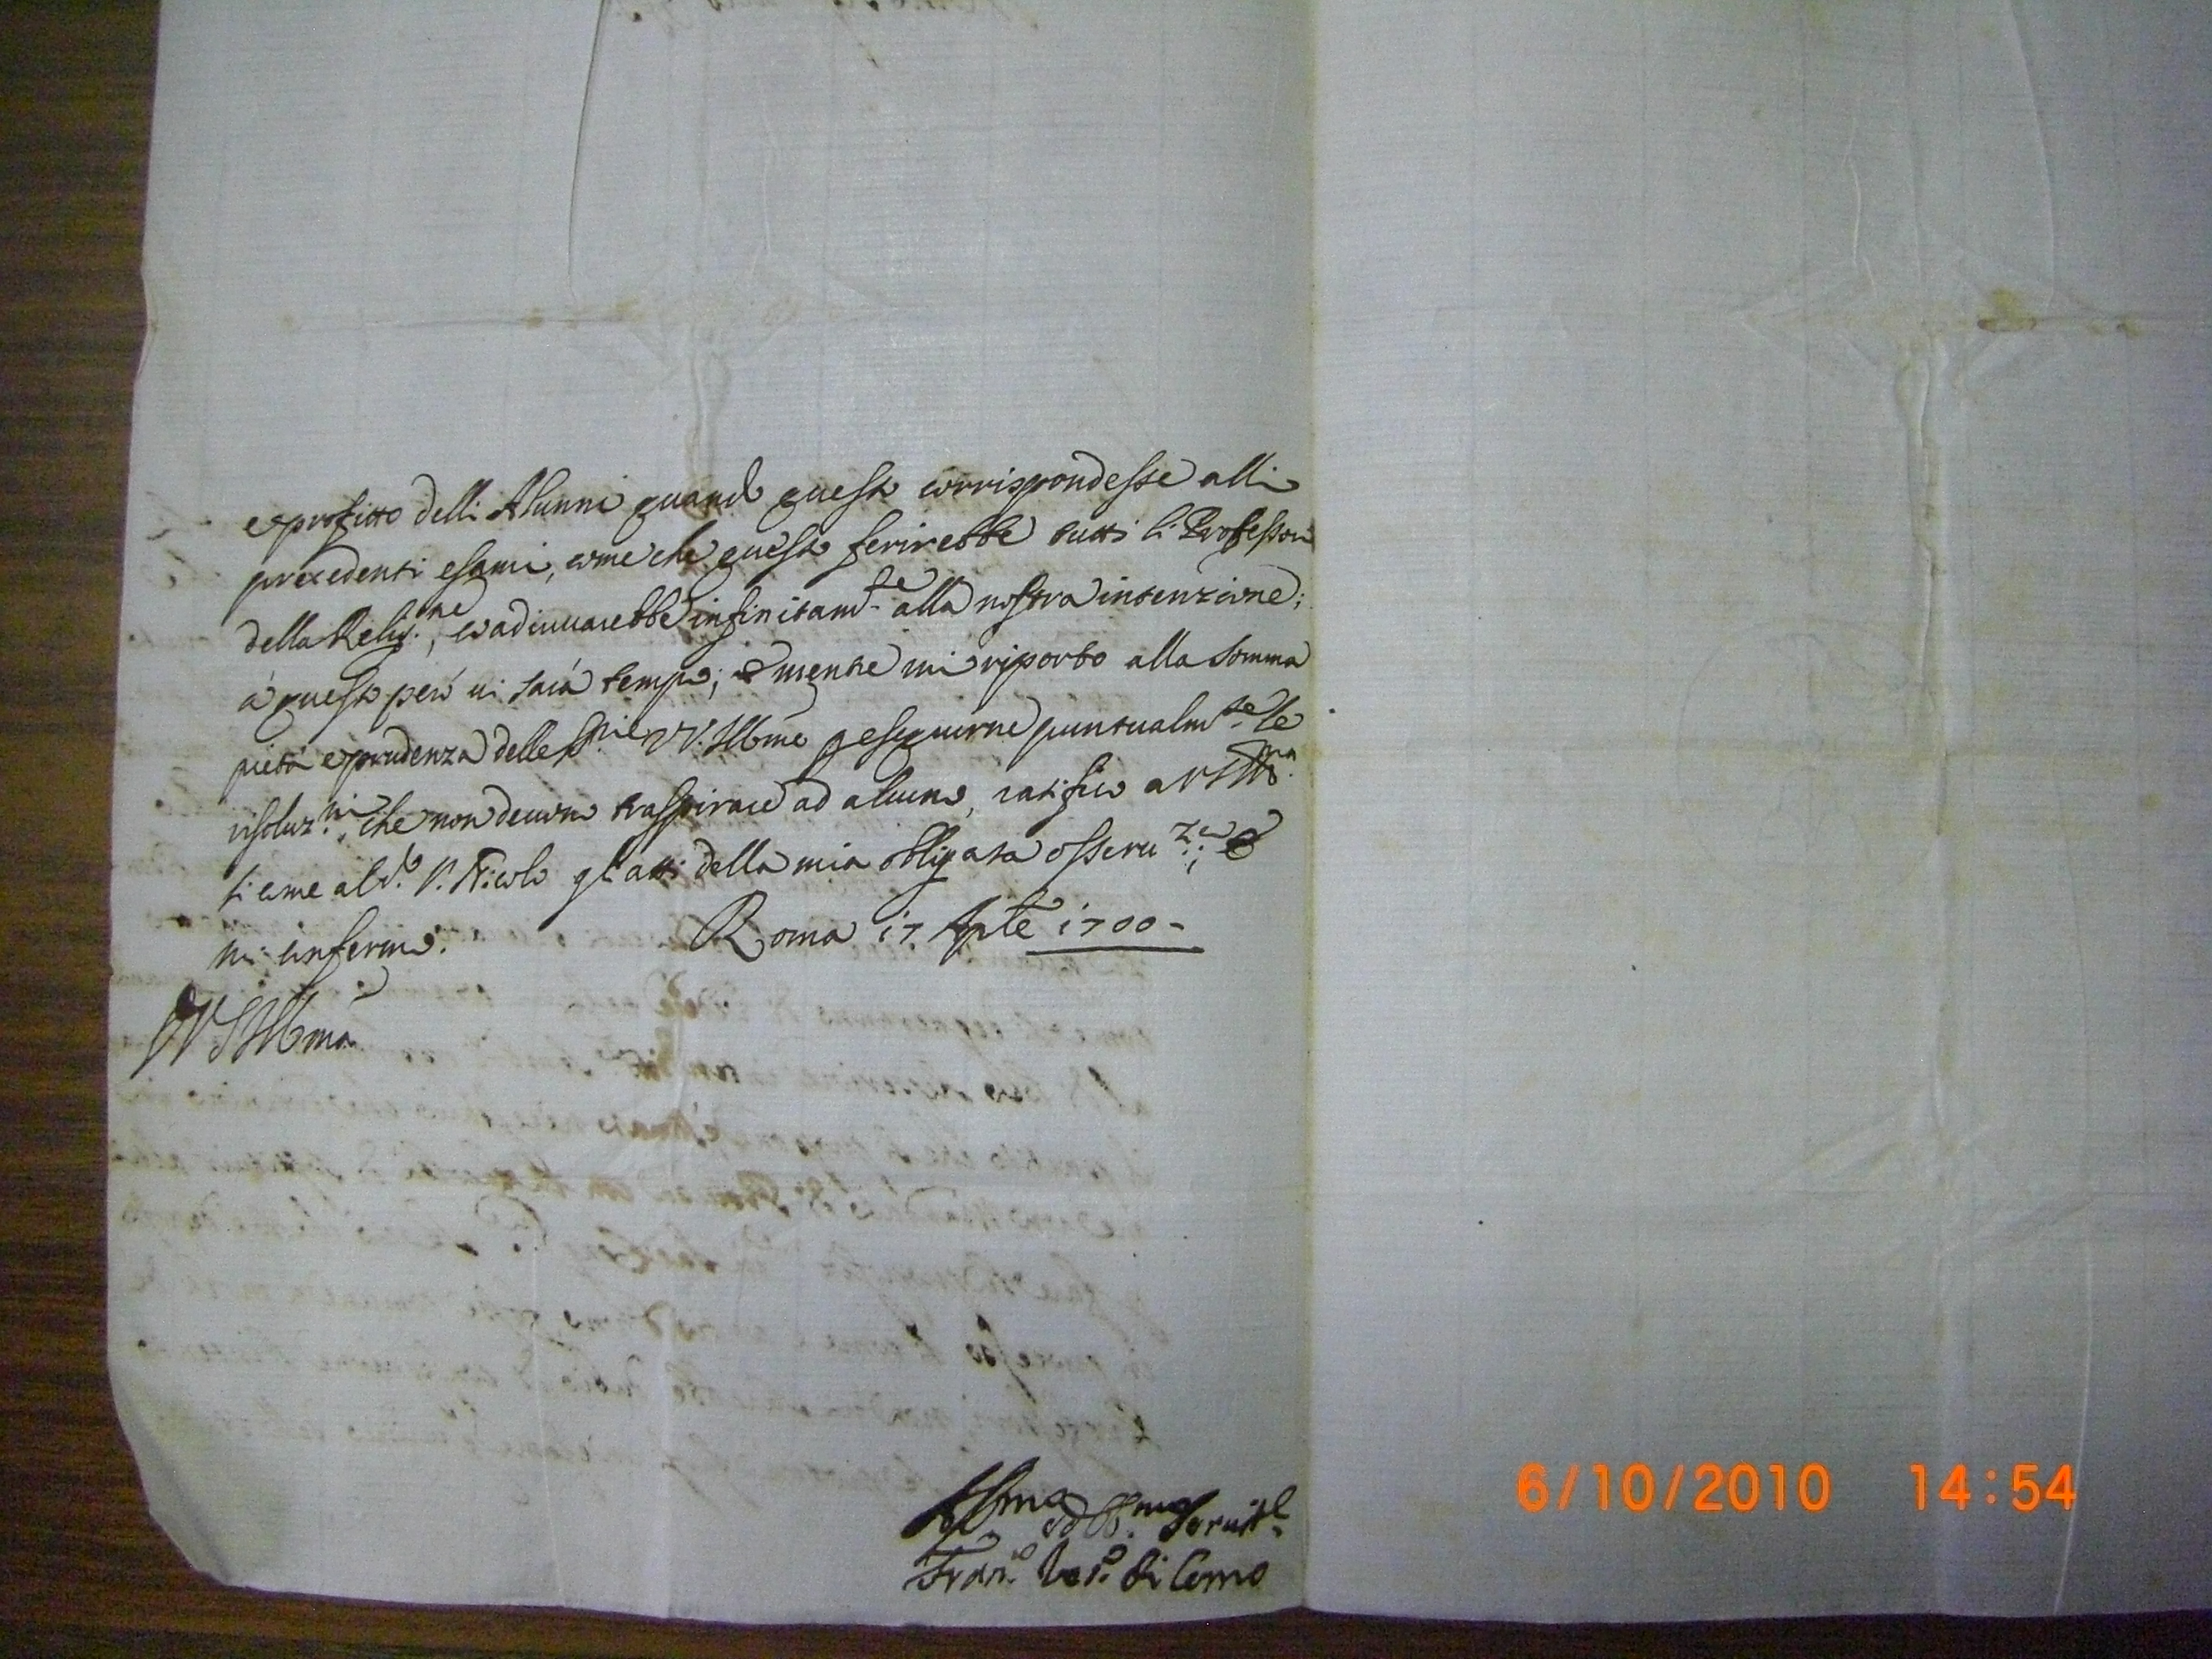 e profitto delli Alunni quando questo corrispondesse alli
precedenti esami, come che questo ferirebbe tutti li Professori
della Relig.ne, coadiuuarebbe infinitam.te alla nostra intenzione;
à questo però ui sarà tempo; e mentre mi riporto alla somma
pietà e prudenza delle VV. Ill.me p eseguirne puntualm.te le
risoluz.ni, che non deuono traspirare ad alcuno, ratifico a VS Ill.ma
si come al d.o S. Nicolo gl'atti della mia obligata osseru.za; e
mi confermo.
Roma 17 Aple 1700-
VS Illma
ed Obb.mo Seruit.e
Fran.o Ves.o di Como
6/10/2010 14:54